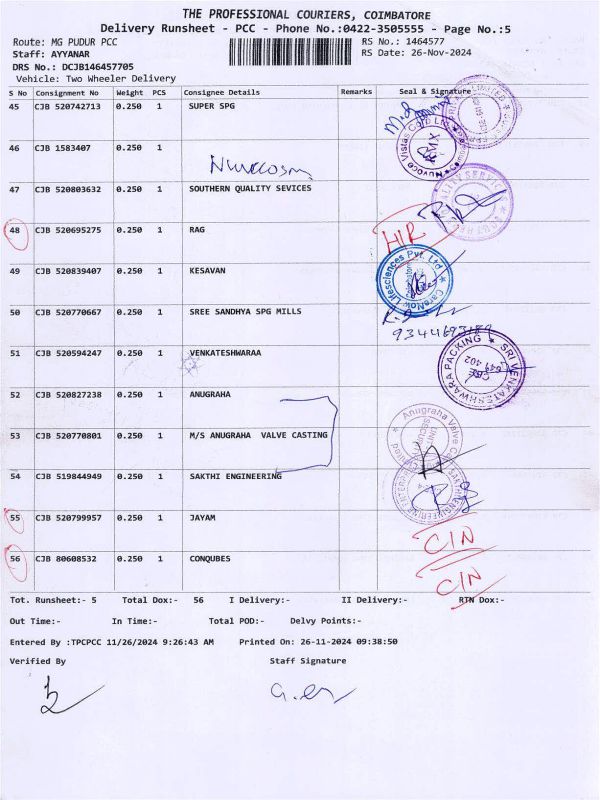 THE PROFESSIONAL COURIERS, COIMBATORE
Delivery Runsheet - PCC - Phone No.:0422-3505555 - Page No.:5
Route: MG PUDUR PCC
RS No.: 1464577
Staff: AYYANAR
RS Date: 26-Nov-2024
DRS No.: DCJB146457705
Vehicle: Two Wheeler Delivery
S No Consignment No Weight PCS Consignee Details Remarks Seal & Signature
45 CJB 520742713 0.250 1 SUPER SPG
46 CJB 1583407 0.250 1
Nuvoco Vistas Corp Ltd
47 CJB 520803632 0.250 1 SOUTHERN QUALITY SEVICES
48 CJB 520695275 0.250 1 RAG
H/R
49 CJB 520839407 0.250 1 KESAVAN
CareNow Lifesciences Pvt. Ltd
50 CJB 520770667 0.250 1 SREE SANDHYA SPG MILLS
51 CJB 520594247 0.250 1 VENKATESHWARAA
SRI VENKATESHWARA PACKING
CBE
641 402
52 CJB 520827238 0.250 1 ANUGRAHA
53 CJB 520770801 0.250 1 M/S ANUGRAHA VALVE CASTING
Anugraha Valve
SECURITY
54 CJB 519844949 0.250 1 SAKTHI ENGINEERING
55 CJB 520799957 0.250 1 JAYAM
C/N
56 CJB 80608532 0.250 1 CONQUBES
C/N
Tot. Runsheet:- 5 Total Dox:- 56 I Delivery:- II Delivery:- RTN Dox:-
Out Time:- In Time:- Total POD:- Delvy Points:-
Entered By :TPCPCC 11/26/2024 9:26:43 AM Printed On: 26-11-2024 09:38:50
Verified By Staff Signature